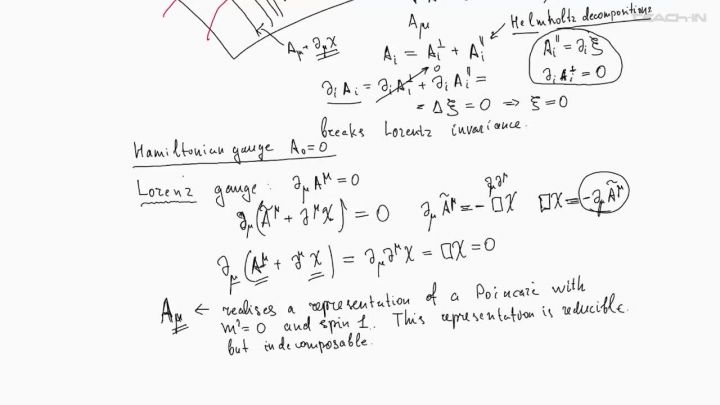 TEACH-IN
A_μ
Helmholtz decompositions
A_μ + ∂_μ χ
A_i = A_i^⊥ + A_i^∥
A_i^∥ = ∂_i ξ
∂_i A_i^⊥ = 0
∂_i A_i = ∂_i A_i^⊥ + ∂_i A_i^∥ =
0
= Δξ = 0 ⇒ ξ = 0
breaks Lorentz invariance.
Hamiltonian gauge A_0 = 0
Lorenz gauge: ∂_μ A^μ = 0
∂_μ ∂^μ
∂_μ(Ã^μ + ∂^μ χ) = 0 ∂_μ Ã^μ = - □χ □χ = -∂_μ Ã^μ
∂_μ(A^μ + ∂^μ χ) = ∂_μ ∂^μ χ = □χ = 0
A_μ ← realises a representation of a Poincaré with
m² = 0 and spin 1. This representation is reducible
but indecomposable.